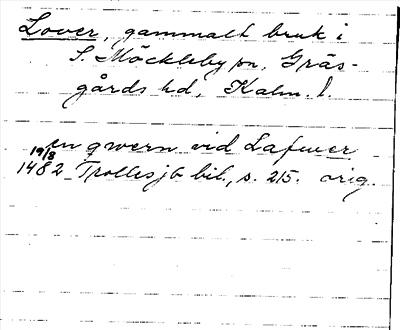 Lover, gammalt bruk i
S. Möckleby sn, Gräs-
gårds hd, Kalm. l.
en qwern vid Lafwer
19/8 1482 Trollesjb bil., s. 215. orig.